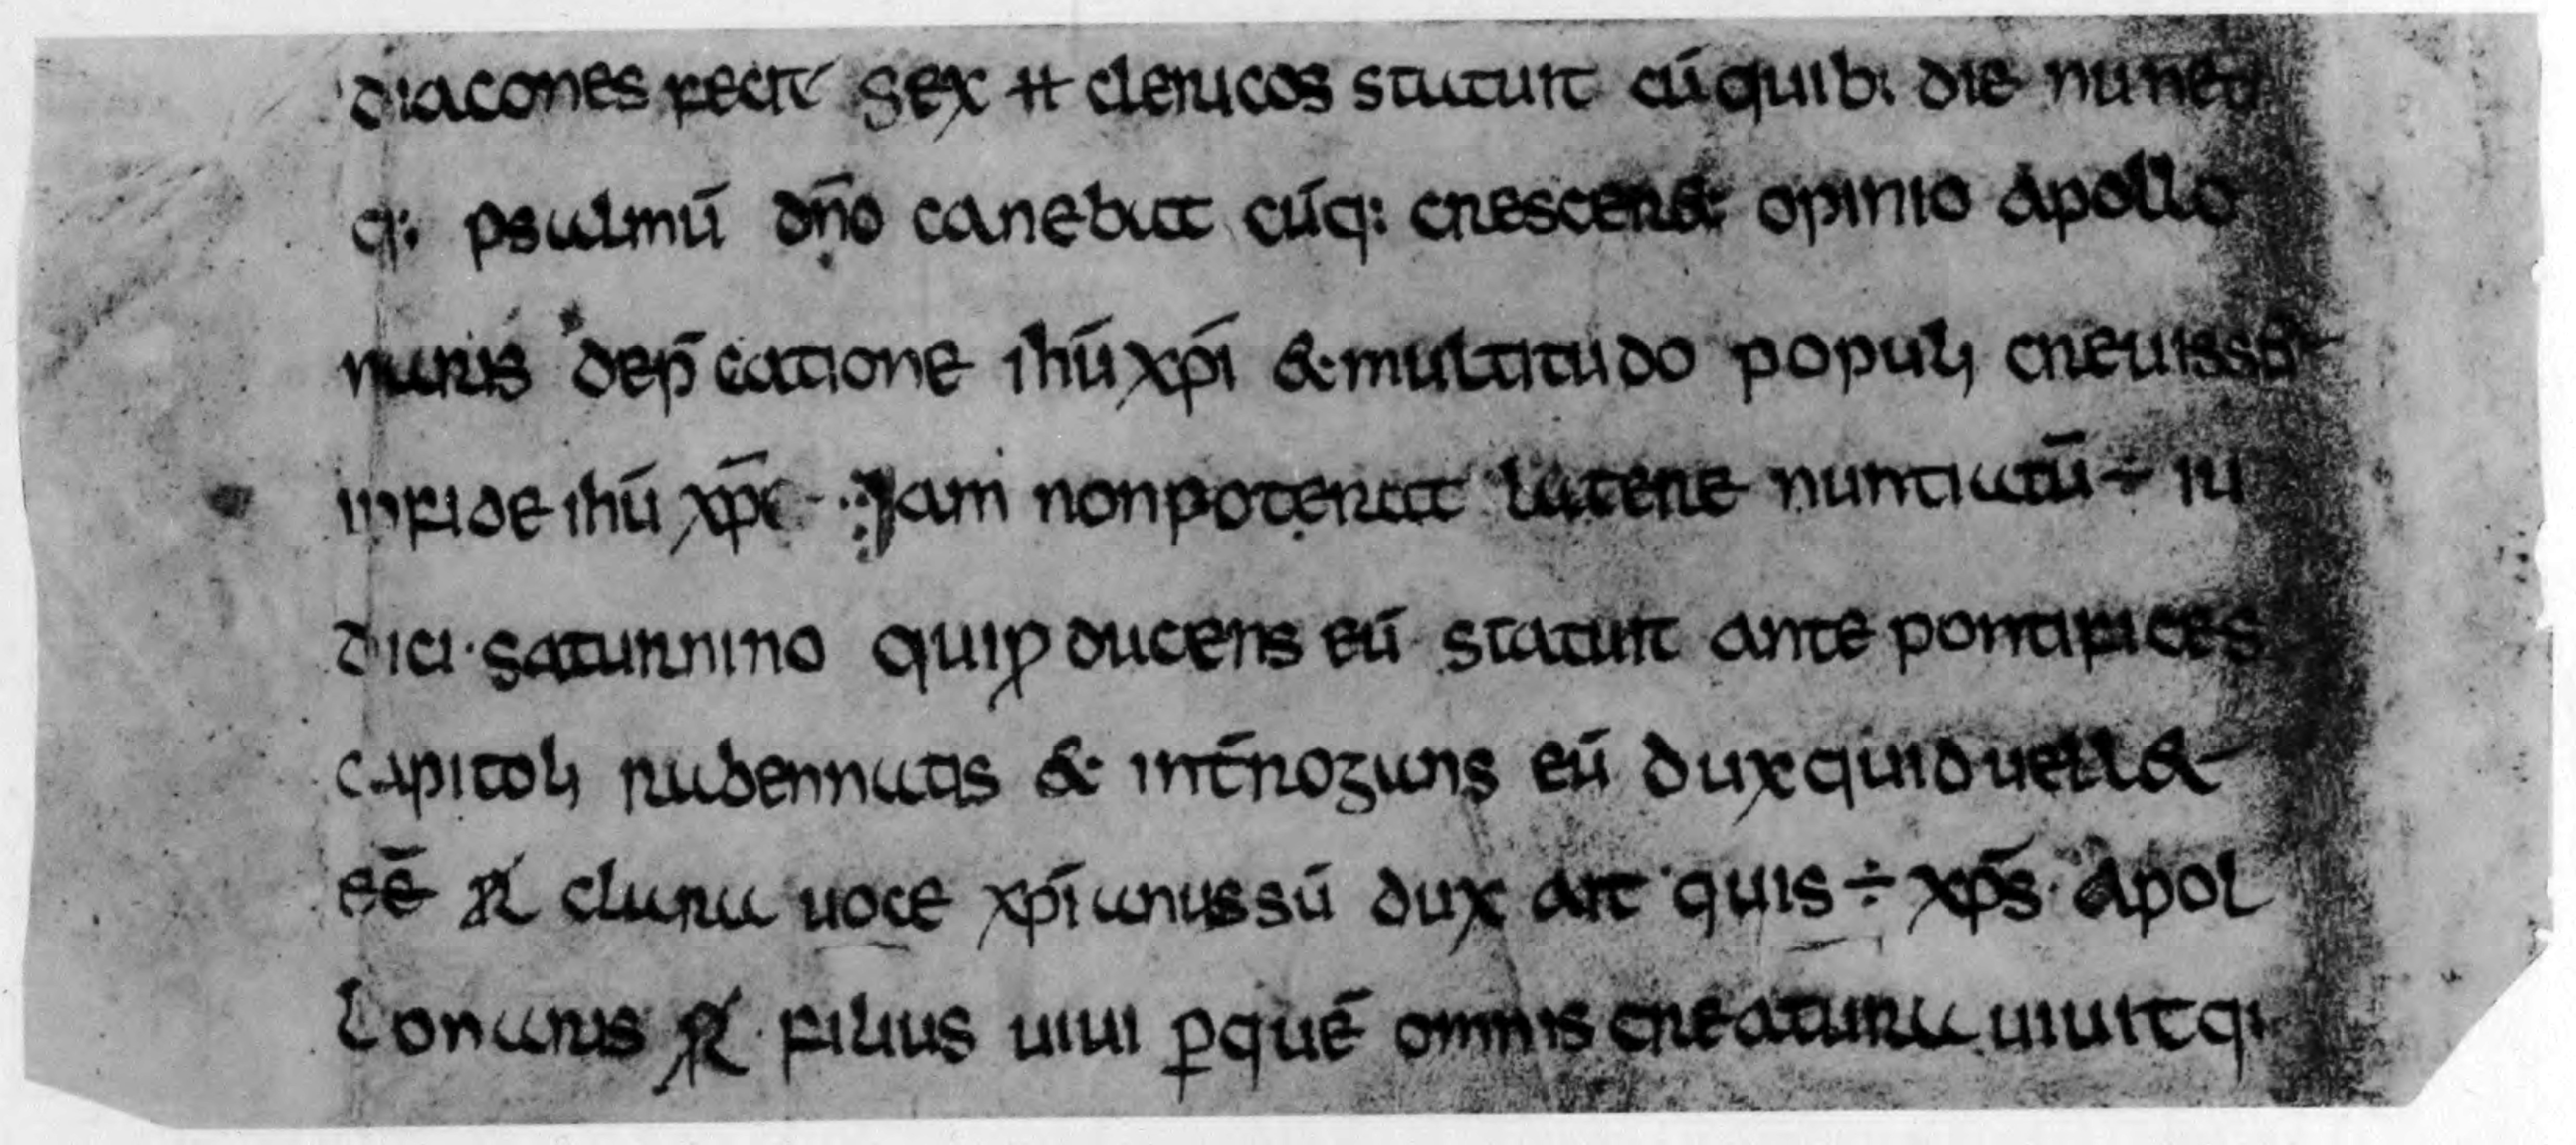 diacones fecit sex ⁊ clericos statuit cū quib; die nuncq;
q; psalmū dn̄o canebat cūq; crescer& opinio apollo
naris dep̄catione ihū xp̄i & multitudo populi creuiss&
in fide ihū xp̄i · Iam non poterat latere nuntiatū ÷ iu
dici · saturnino qui ꝑducens eū statuit ante pontifices
capitolii rabennatis & int̄rogans eū dux quid uell&
eē R clara uoce xp̄ianus sū dux ait quis ÷ xp̄s · apol
lonaris R · filius uiui ꝑ quē omnis creatura uiuit qi